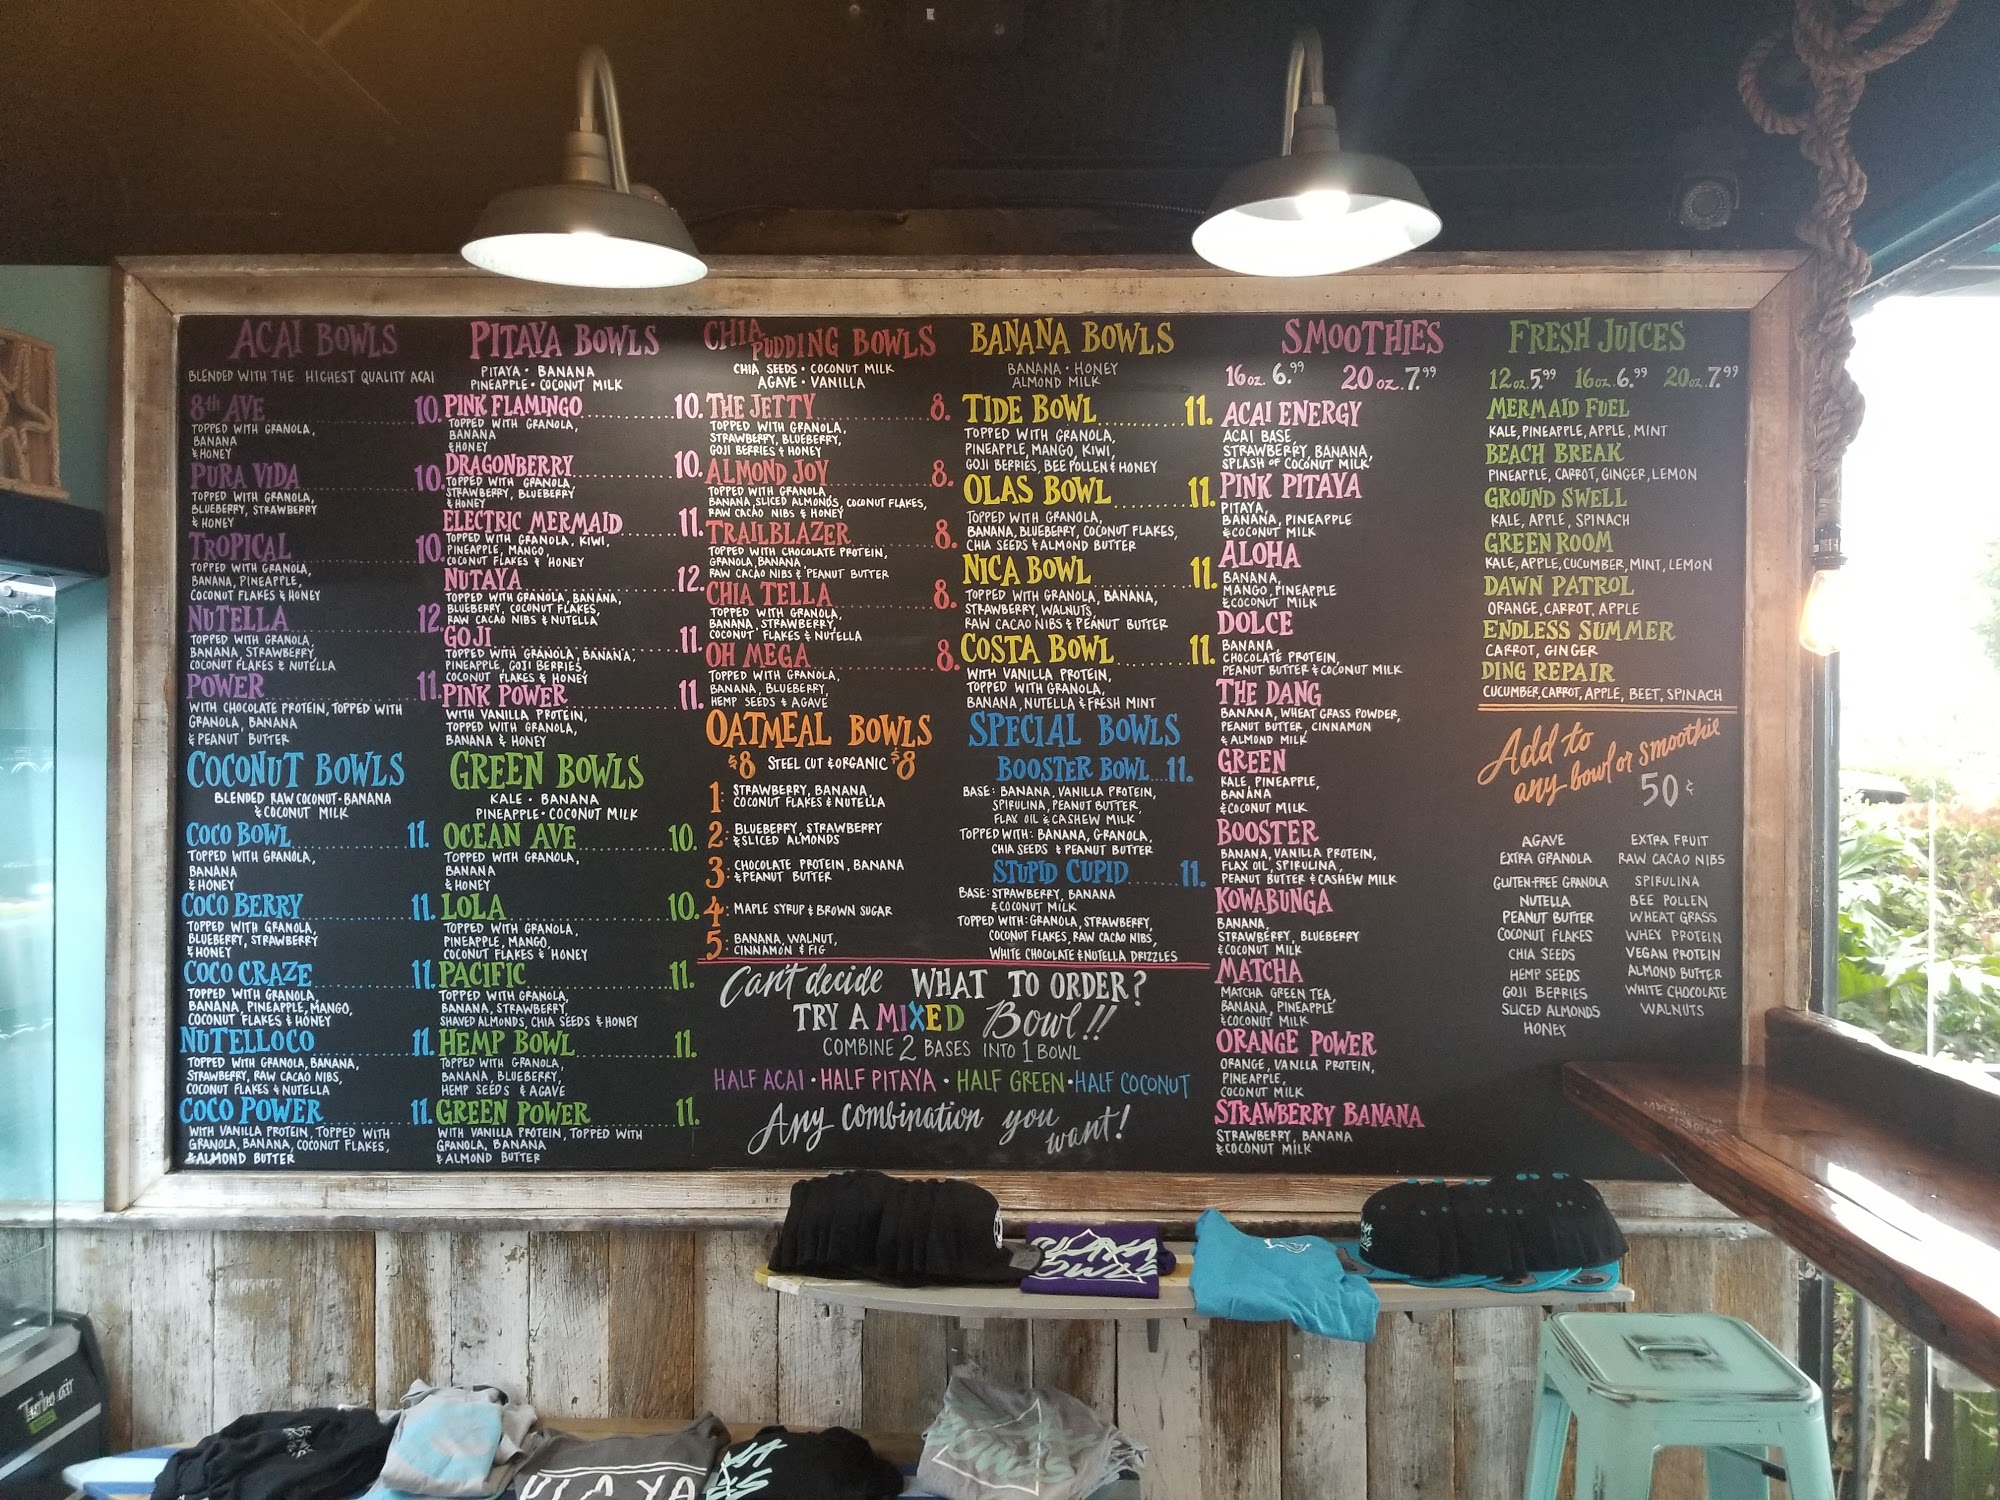 ACAI BOWLS
BLENDED WITH THE HIGHEST QUALITY ACAI
8th AVE 10.
TOPPED WITH GRANOLA,
BANANA
& HONEY
PURA VIDA 10.
TOPPED WITH GRANOLA,
BLUEBERRY, STRAWBERRY
& HONEY
TROPICAL 10.
TOPPED WITH GRANOLA,
BANANA, PINEAPPLE,
COCONUT FLAKES & HONEY
NUTELLA 12.
TOPPED WITH GRANOLA,
BANANA, STRAWBERRY,
COCONUT FLAKES & NUTELLA
POWER 11.
WITH CHOCOLATE PROTEIN, TOPPED WITH
GRANOLA, BANANA
& PEANUT BUTTER
COCONUT BOWLS
BLENDED RAW COCONUT • BANANA
& COCONUT MILK
COCO BOWL 11.
TOPPED WITH GRANOLA,
BANANA
& HONEY
COCO BERRY 11.
TOPPED WITH GRANOLA,
BLUEBERRY, STRAWBERRY
& HONEY
COCO CRAZE 11.
TOPPED WITH GRANOLA,
BANANA, PINEAPPLE, MANGO,
COCONUT FLAKES & HONEY
NUTELLOCO 11.
TOPPED WITH GRANOLA, BANANA,
STRAWBERRY, RAW CACAO NIBS,
COCONUT FLAKES & NUTELLA
COCO POWER 11.
WITH VANILLA PROTEIN, TOPPED WITH
GRANOLA, BANANA, COCONUT FLAKES,
& ALMOND BUTTER
PITAYA BOWLS
PITAYA • BANANA
PINEAPPLE • COCONUT MILK
PINK FLAMINGO 10.
TOPPED WITH GRANOLA,
BANANA
& HONEY
DRAGONBERRY 10.
TOPPED WITH GRANOLA,
STRAWBERRY, BLUEBERRY
& HONEY
ELECTRIC MERMAID 11.
TOPPED WITH GRANOLA, KIWI,
PINEAPPLE, MANGO,
COCONUT FLAKES & HONEY
NUTAYA 12.
TOPPED WITH GRANOLA, BANANA,
BLUEBERRY, COCONUT FLAKES,
RAW CACAO NIBS & NUTELLA
GOJI 11.
TOPPED WITH GRANOLA, BANANA,
PINEAPPLE, GOJI BERRIES,
COCONUT FLAKES & HONEY
PINK POWER 11.
WITH VANILLA PROTEIN,
TOPPED WITH GRANOLA,
BANANA & HONEY
GREEN BOWLS
KALE • BANANA
PINEAPPLE • COCONUT MILK
OCEAN AVE 10.
TOPPED WITH GRANOLA,
BANANA
& HONEY
LOLA 10.
TOPPED WITH GRANOLA,
PINEAPPLE, MANGO,
COCONUT FLAKES & HONEY
PACIFIC 11.
TOPPED WITH GRANOLA,
BANANA, STRAWBERRY,
SHAVED ALMONDS, CHIA SEEDS & HONEY
HEMP BOWL 11.
TOPPED WITH GRANOLA,
BANANA, BLUEBERRY,
HEMP SEEDS & AGAVE
GREEN POWER 11.
WITH VANILLA PROTEIN, TOPPED WITH
GRANOLA, BANANA
& ALMOND BUTTER
CHIA PUDDING BOWLS
CHIA SEEDS • COCONUT MILK
AGAVE • VANILLA
THE JETTY 8.
TOPPED WITH GRANOLA,
STRAWBERRY, BLUEBERRY,
GOJI BERRIES & HONEY
ALMOND JOY 8.
TOPPED WITH GRANOLA,
BANANA, SLICED ALMONDS, COCONUT FLAKES,
RAW CACAO NIBS & HONEY
TRAILBLAZER 8.
TOPPED WITH CHOCOLATE PROTEIN,
GRANOLA, BANANA,
RAW CACAO NIBS & PEANUT BUTTER
CHIA TELLA 8.
TOPPED WITH GRANOLA,
BANANA, STRAWBERRY,
COCONUT FLAKES & NUTELLA
OH MEGA 8.
TOPPED WITH GRANOLA,
BANANA, BLUEBERRY,
HEMP SEEDS & AGAVE
OATMEAL BOWLS
$8 STEEL CUT & ORGANIC $8
1: STRAWBERRY, BANANA,
COCONUT FLAKES & NUTELLA
2: BLUEBERRY, STRAWBERRY
& SLICED ALMONDS
3: CHOCOLATE PROTEIN, BANANA
& PEANUT BUTTER
4: MAPLE SYRUP & BROWN SUGAR
5: BANANA, WALNUT,
CINNAMON & FIG
BANANA BOWLS
BANANA • HONEY
ALMOND MILK
TIDE BOWL 11.
TOPPED WITH GRANOLA,
PINEAPPLE, MANGO, KIWI,
GOJI BERRIES, BEE POLLEN & HONEY
OLAS BOWL 11.
TOPPED WITH GRANOLA,
BANANA, BLUEBERRY, COCONUT FLAKES,
CHIA SEEDS & ALMOND BUTTER
NICA BOWL 11.
TOPPED WITH GRANOLA, BANANA,
STRAWBERRY, WALNUTS,
RAW CACAO NIBS & PEANUT BUTTER
COSTA BOWL 11.
WITH VANILLA PROTEIN,
TOPPED WITH GRANOLA,
BANANA, NUTELLA & FRESH MINT
SPECIAL BOWLS
BOOSTER BOWL 11.
BASE: BANANA, VANILLA PROTEIN,
SPIRULINA, PEANUT BUTTER,
FLAX OIL & CASHEW MILK
TOPPED WITH: BANANA, GRANOLA,
CHIA SEEDS & PEANUT BUTTER
STUPID CUPID 11.
BASE: STRAWBERRY, BANANA
& COCONUT MILK
TOPPED WITH: GRANOLA, STRAWBERRY,
COCONUT FLAKES, RAW CACAO NIBS,
WHITE CHOCOLATE & NUTELLA DRIZZLES
Can't decide WHAT TO ORDER?
TRY A MIXED Bowl!!
COMBINE 2 BASES INTO 1 BOWL
HALF ACAI • HALF PITAYA • HALF GREEN • HALF COCONUT
Any combination you want!
SMOOTHIES
16 oz. 6.99 20 oz. 7.99
ACAI ENERGY
ACAI BASE,
STRAWBERRY, BANANA,
SPLASH OF COCONUT MILK
PINK PITAYA
PITAYA,
BANANA, PINEAPPLE
& COCONUT MILK
ALOHA
BANANA,
MANGO, PINEAPPLE
& COCONUT MILK
DOLCE
BANANA,
CHOCOLATE PROTEIN,
PEANUT BUTTER & COCONUT MILK
THE DANG
BANANA, WHEAT GRASS POWDER,
PEANUT BUTTER, CINNAMON
& ALMOND MILK
GREEN
KALE, PINEAPPLE,
BANANA
& COCONUT MILK
BOOSTER
BANANA, VANILLA PROTEIN,
FLAX OIL, SPIRULINA,
PEANUT BUTTER & CASHEW MILK
KOWABUNGA
BANANA,
STRAWBERRY, BLUEBERRY
& COCONUT MILK
MATCHA
MATCHA GREEN TEA,
BANANA, PINEAPPLE
& COCONUT MILK
ORANGE POWER
ORANGE, VANILLA PROTEIN,
PINEAPPLE,
COCONUT MILK
STRAWBERRY BANANA
STRAWBERRY, BANANA
& COCONUT MILK
FRESH JUICES
12 oz. 5.99 16 oz. 6.99 20 oz. 7.99
MERMAID FUEL
KALE, PINEAPPLE, APPLE, MINT
BEACH BREAK
PINEAPPLE, CARROT, GINGER, LEMON
GROUND SWELL
KALE, APPLE, SPINACH
GREEN ROOM
KALE, APPLE, CUCUMBER, MINT, LEMON
DAWN PATROL
ORANGE, CARROT, APPLE
ENDLESS SUMMER
CARROT, GINGER
DING REPAIR
CUCUMBER, CARROT, APPLE, BEET, SPINACH
Add to
any bowl or smoothie
50¢
AGAVE
EXTRA GRANOLA
GLUTEN-FREE GRANOLA
NUTELLA
PEANUT BUTTER
COCONUT FLAKES
CHIA SEEDS
HEMP SEEDS
GOJI BERRIES
SLICED ALMONDS
HONEY
EXTRA FRUIT
RAW CACAO NIBS
SPIRULINA
BEE POLLEN
WHEAT GRASS
WHEY PROTEIN
VEGAN PROTEIN
ALMOND BUTTER
WHITE CHOCOLATE
WALNUTS
PLAYA
BOWLS
PLAYA